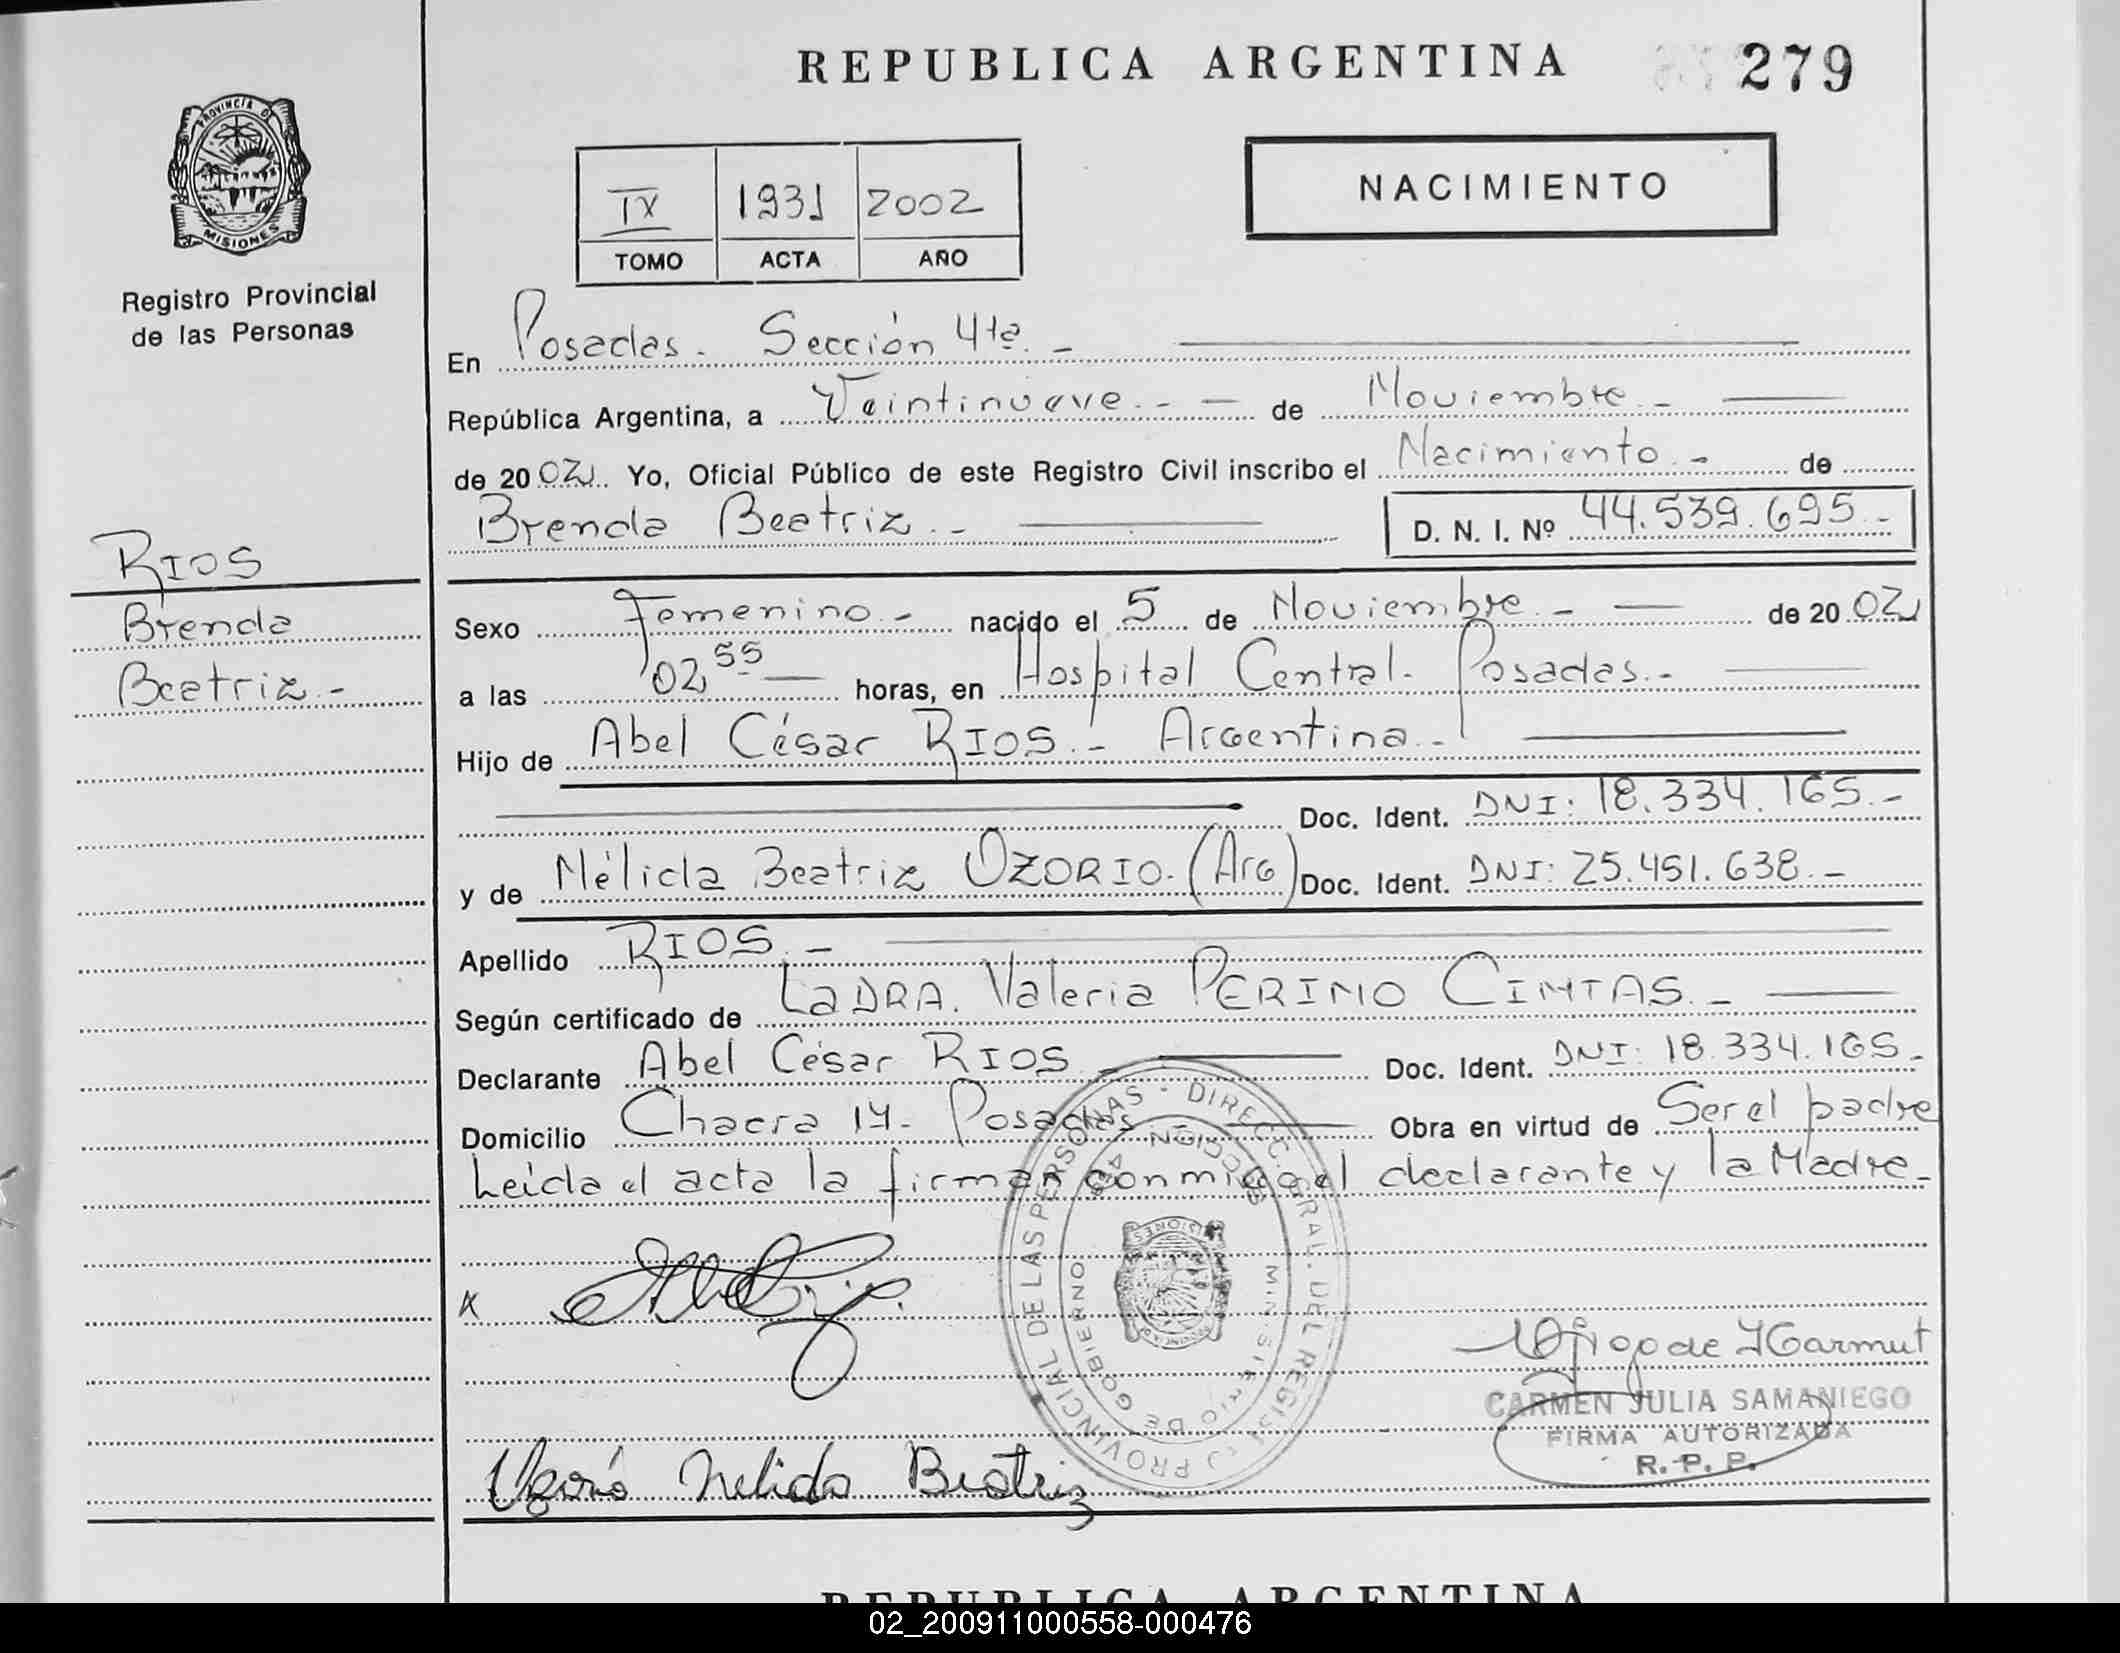 REPUBLICA ARGENTINA
279
PROVINCIA DE
MISIONES
Registro Provincial
de las Personas
IX 1931 2002
TOMO ACTA AÑO
NACIMIENTO
En Posadas. Sección 4ta. -
República Argentina, a Veintinueve. - - de Noviembre. -
de 2002. Yo, Oficial Público de este Registro Civil inscribo el Nacimiento. - de
Brenda Beatriz. - D. N. I. Nº 44.539.695. -
RIOS
Brenda
Beatriz. -
Sexo Femenino. - nacido el 5 de Noviembre. - de 2002
a las 02 55 horas, en Hospital Central. Posadas. -
Hijo de Abel César RIOS. - Argentina. -
Doc. Ident. DNI: 18.334.165. -
y de Nélida Beatriz OZORIO. (Arg) Doc. Ident. DNI: 25.451.638. -
Apellido RIOS. -
Según certificado de La DRA. Valeria PERINO CINTAS. -
Declarante Abel César RIOS. - Doc. Ident. DNI: 18.334.165. -
Domicilio Chacra 14. Posadas Obra en virtud de Ser el padre
Leída el acta la firman conmigo el declarante y la Madre. -
DIRECC. GRAL. DEL REGISTRO PROVINCIAL DE LAS PERSONAS
MINISTERIO DE GOBIERNO
MISIONES
CARMEN JULIA SAMANIEGO
FIRMA AUTORIZADA
R. P. P.
Nelida Beatriz
REPUBLICA ARGENTINA
02_200911000558-000476